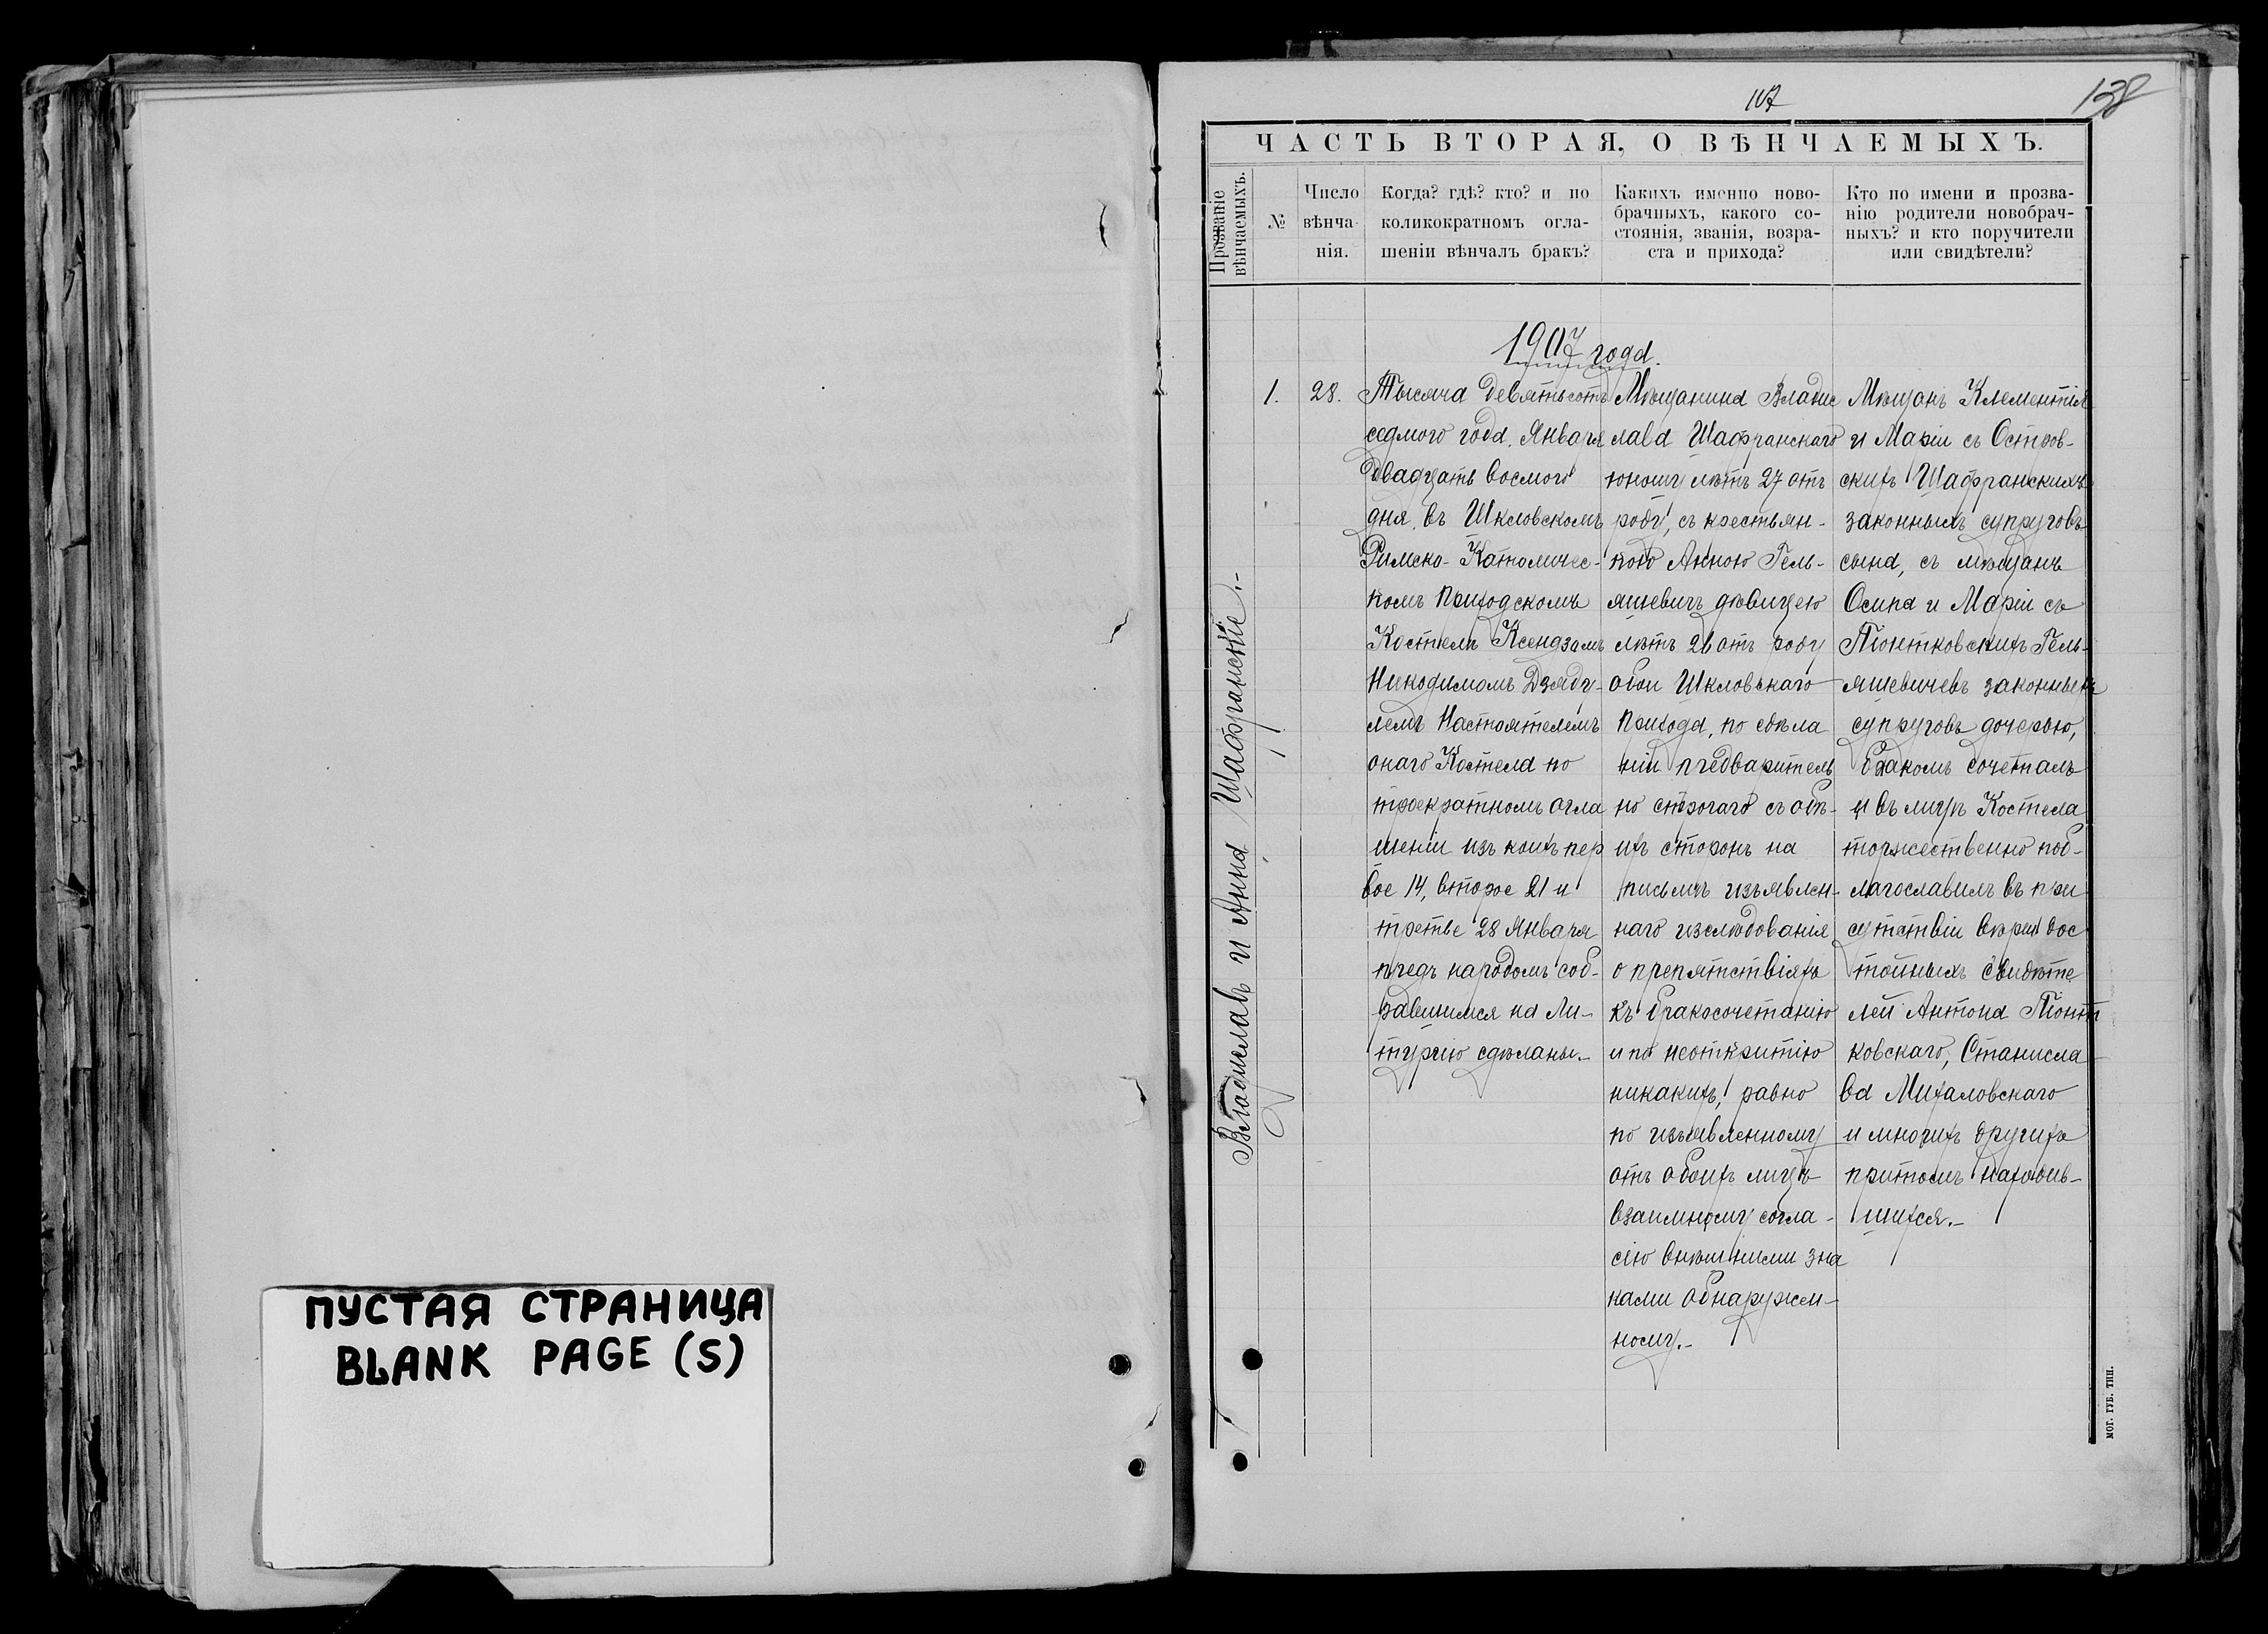 ПУСТАЯ СТРАНИЦА
BLANK PAGE (S)
107
138
ЧАСТЬ ВТОРАЯ, О ВѢНЧАЕМЫХЪ.
Прозваніе
вѣнчаемыхъ.
№
Число
вѣнча-
нія.
Когда? гдѣ? кто? и по
коликократномъ огла-
шеніи вѣнчалъ бракъ?
Какихъ именно ново-
брачныхъ, какого со-
стоянія, званія, возра-
ста и прихода?
Кто по имени и прозва-
нію родители новобрач-
ныхъ? и кто поручители
или свидѣтели?
1907 года.
Владиславъ и Анна Шафранскіе.-
1.
28.
Тысяча девятьсотъ
седмого года. Января
двадцать восмого
дня въ Шкловскомъ
Римско-Католичес-
комъ приходскомъ
Костелѣ Ксендзамъ
Никодимомъ Дзяду-
лемъ Настоятелемъ
онаго Костела по
троекратномъ огла
шеніи изъ коихъ пер
вое 14, второе 21 и
третье 28 Января
предъ народомъ соб-
равшимся на Ли-
тургію сдѣланы.-
Мѣщанина Владис
лава Шафранскаго
юношу лѣтъ 27 отъ
роду, съ крестьян-
кою Анною Гель-
яшевичъ дѣвицею
лѣтъ 21 отъ роду
обои Шкловскаго
прихода, по сдѣла
ніи предваритель
но строгаго съ обѣ-
ихъ сторонъ на
письмѣ изъявлен-
наго изслѣдованія
о препятствіяхъ
къ бракосочетанію
и по неоткритію
никакихъ, равно
по изъявленному
отъ обоихъ лицъ
взаимному согла-
сію внѣшними зна
ками обнаружен-
ному.-
Мѣщанъ Клементія
и Маріи съ Остров-
скихъ Шафранскихъ
законныхъ супруговъ
сына, съ мѣщанъ
Осипа и Маріи съ
Піонтковскихъ Гель-
яшевичевъ законныхъ
супруговъ дочерью,
бракомъ сочеталъ
и въ лицѣ Костела
торжественно поб-
лагославилъ въ при
сутствіи вѣры дос
тойныхъ свидѣте
лей Антона Піонт
ковскаго, Станисла
ва Михаловскаго
и многихъ другихъ
притомъ находив-
шихся.-
МОГ. ГУБ. ТИП.